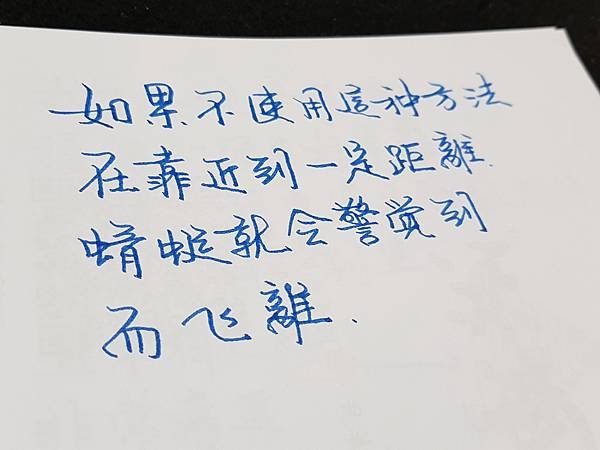 如果不使用這种方法
在靠近到一定距離.
蜻蜓就会警觉到
而飞離.